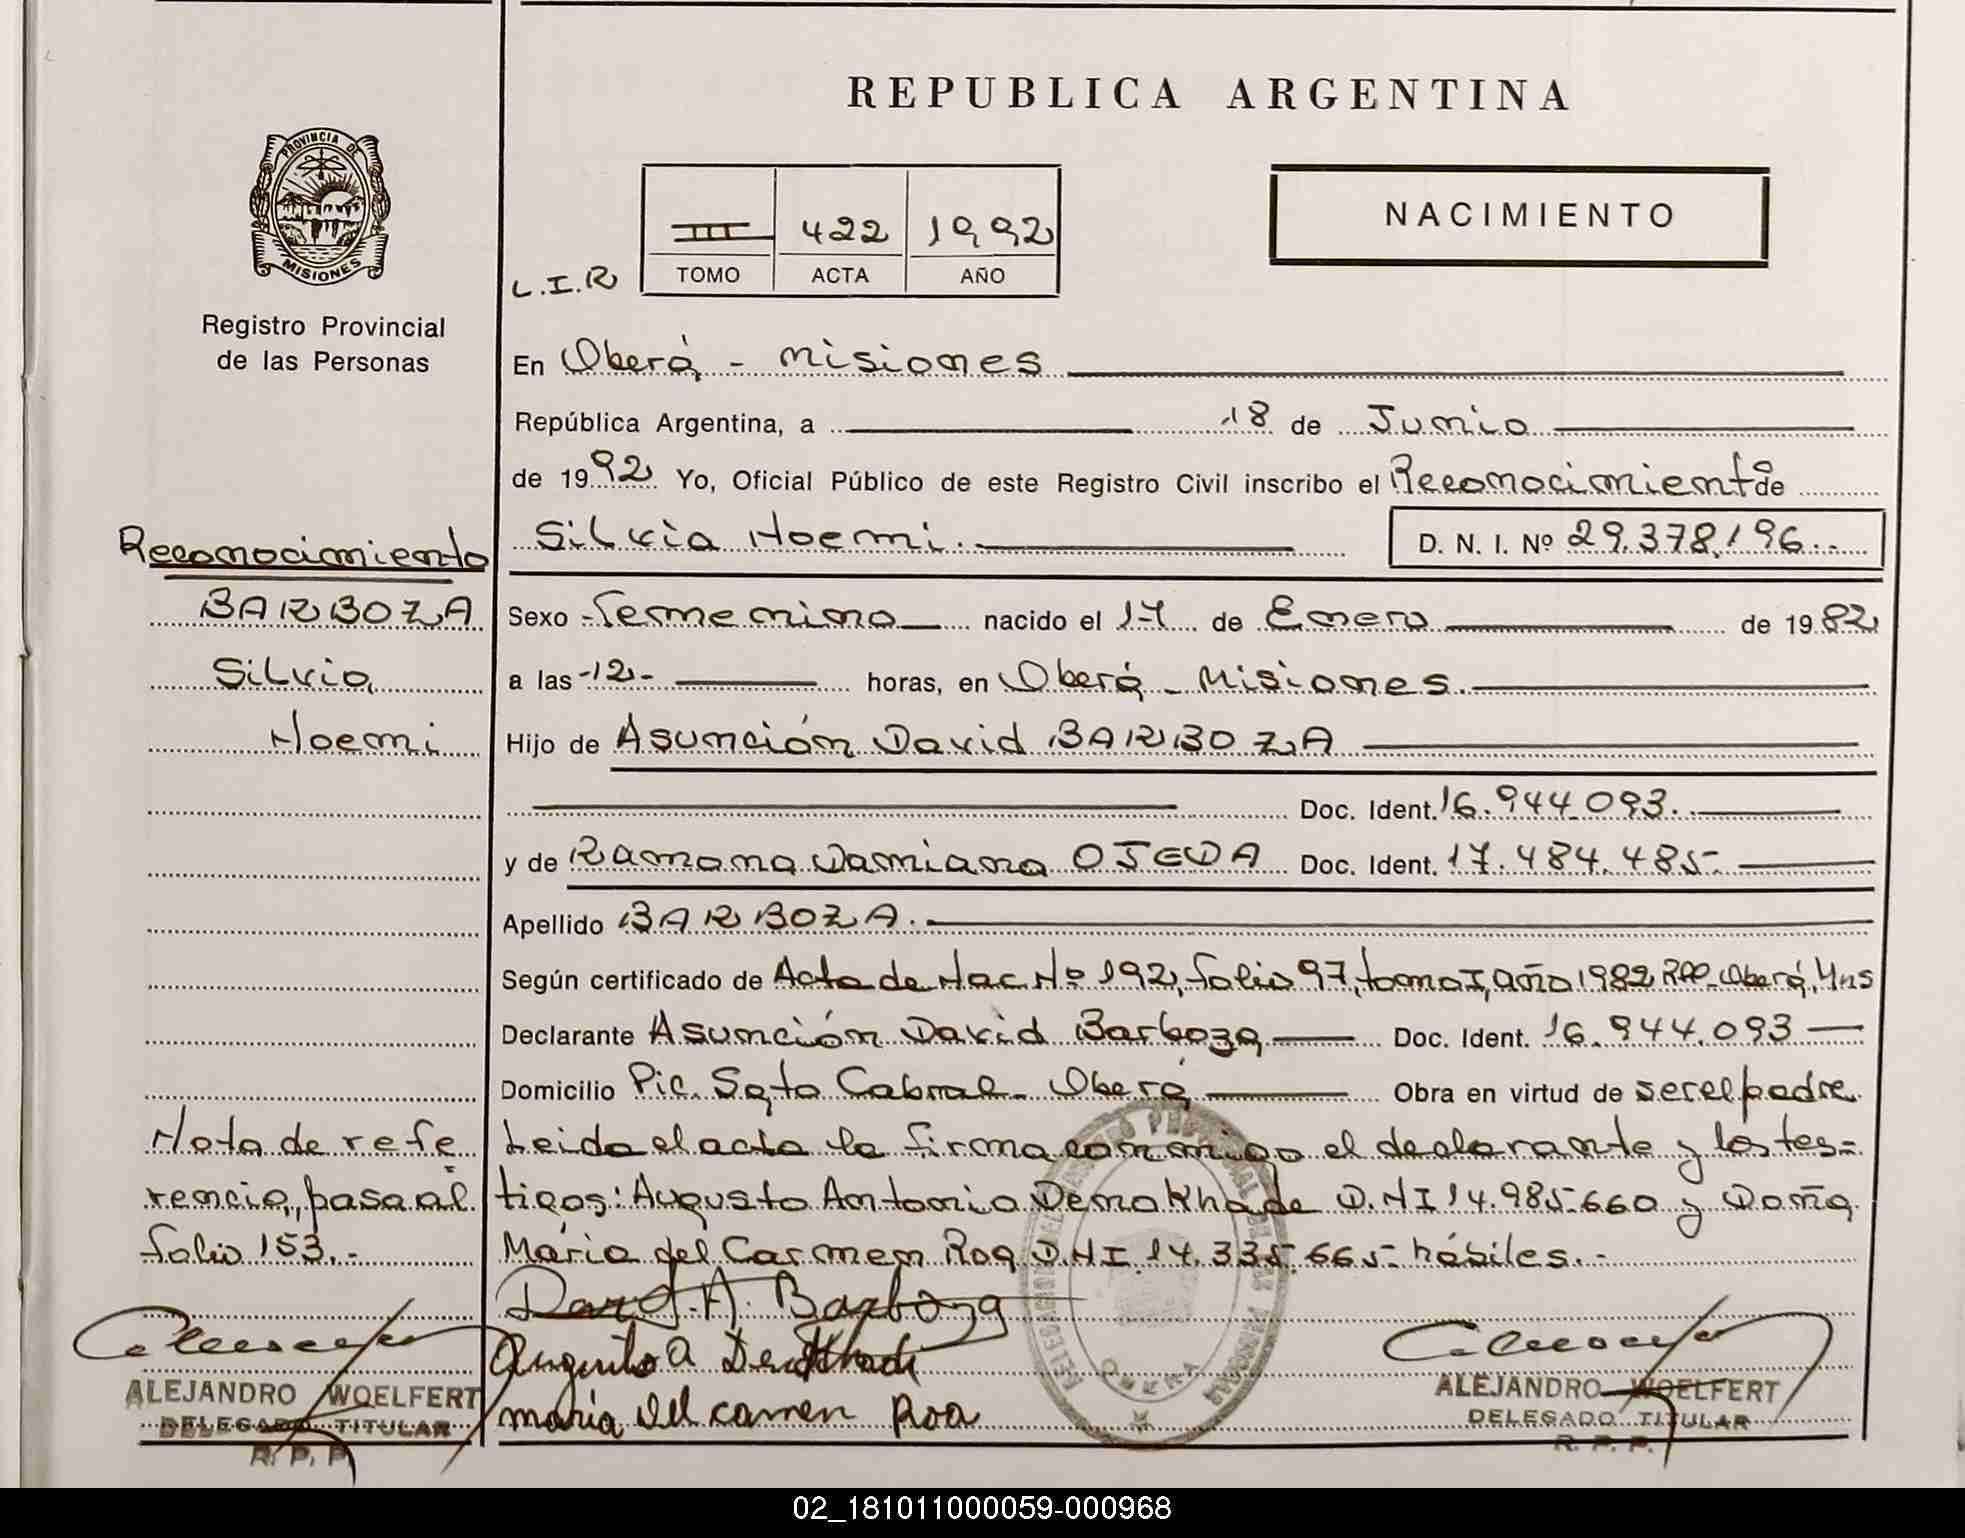 REPUBLICA ARGENTINA
PROVINCIA DE
MISIONES
NACIMIENTO
III 422 1992
TOMO ACTA AÑO
L.I.R
Registro Provincial
de las Personas
En Oberá - Misiones
República Argentina, a 18 de Junio
de 1992 Yo, Oficial Público de este Registro Civil inscribo el Reconocimiento de
Silvia Noemi. D. N. I. Nº 29.378.196.-
Reconocimiento
BARBOZA
Silvia
Noemi
Sexo Femenino nacido el 17 de Enero de 1982
a las -12- horas, en Oberá - Misiones.
Hijo de Asunción David BARBOZA
Doc. Ident. 16.944.093.
y de Ramona Damiana OJEDA Doc. Ident. 17.484.485-
Apellido BARBOZA.
Según certificado de Acta de Nac Nº 192, folio 97, tomo I, año 1982 RPP- Oberá, Mns
Declarante Asunción David Barboza Doc. Ident. 16.944.093
Domicilio Pic. Sgto Cabral - Oberá Obra en virtud de ser el padre.
Leida el acta la firma conmigo el declarante y los tes=
tigos: Augusto Antonio Demakhade D.N.I 14.985.660 y Doña
María del Carmen Roa D.N.I. 14.335.665- hábiles.-
Nota de refe
=
rencia, pasa al
folio 153.-
David A. Barboza
Augusto A
maria del carmen Roa
OBERA
ALEJANDRO WOELFERT
DELEGADO TITULAR
R. P. P.
ALEJANDRO WOELFERT
DELEGADO TITULAR
R. P. P.
02_181011000059-000968